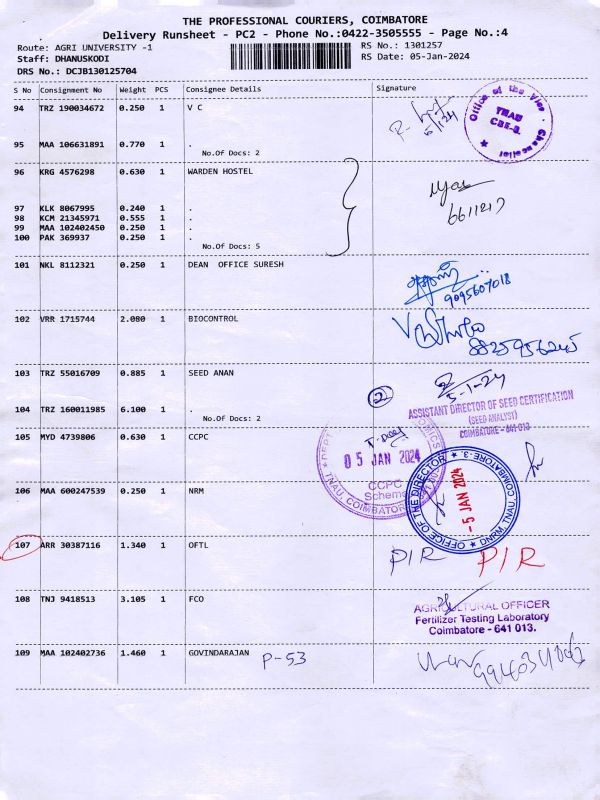 THE PROFESSIONAL COURIERS, COIMBATORE
Delivery Runsheet - PC2 - Phone No.:0422-3505555 - Page No.:4
Route: AGRI UNIVERSITY -1
RS No.: 1301257
Staff: DHANUSKODI
RS Date: 05-Jan-2024
DRS No.: DCJB130125704
S No Consignment No Weight PCS Consignee Details Signature
94 TRZ 190034672 0.250 1 V C
Office of the Vice - Chancellor
TNAU
CBE-3.
95 MAA 106631891 0.770 1 .
No.Of Docs: 2
96 KRG 4576298 0.630 1 WARDEN HOSTEL
97 KLK 8067995 0.240 1 .
98 KCM 21345971 0.555 1 .
99 MAA 102402450 0.250 1 .
100 PAK 369937 0.250 1 .
No.Of Docs: 5
101 NKL 8112321 0.250 1 DEAN OFFICE SURESH
9095607018
102 VRR 1715744 2.080 1 BIOCONTROL
103 TRZ 55016709 0.885 1 SEED ANAN
5-1-24
2
104 TRZ 160011985 6.100 1 .
No.Of Docs: 2
ASSISTANT DIRECTOR OF SEED CERTIFICATION
(SEED ANALYST)
COIMBATORE - 641 013.
105 MYD 4739806 0.630 1 CCPC
05 JAN 2024
CCPC
Scheme
TNAU, COIMBATORE
106 MAA 600247539 0.250 1 NRM
OFFICE OF THE DIRECTOR
-5 JAN 2024
DNRM, TNAU, COIMBATORE-3.
107 ARR 30387116 1.340 1 OFTL
P/R P/R
108 TNJ 9418513 3.105 1 FCO
AGRICULTURAL OFFICER
Fertilizer Testing Laboratory
Coimbatore - 641 013.
109 MAA 102402736 1.460 1 GOVINDARAJAN P-53